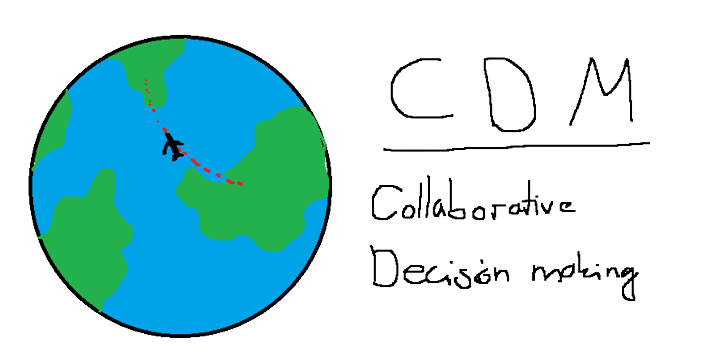 CDM
Collaborative
Decisión making